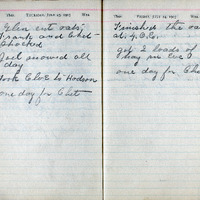 Ther. THURSDAY, JULY 15, 1915 Wea.
Glen cut oats,
Frank and Chet
shocked
Joel mowed all
day
Took Clo E to Hudson
one day for Chet
Ther. FRIDAY, JULY 16, 1915 Wea.
Finished the oats
at
got 2 loads of
hay in
one day for Chet